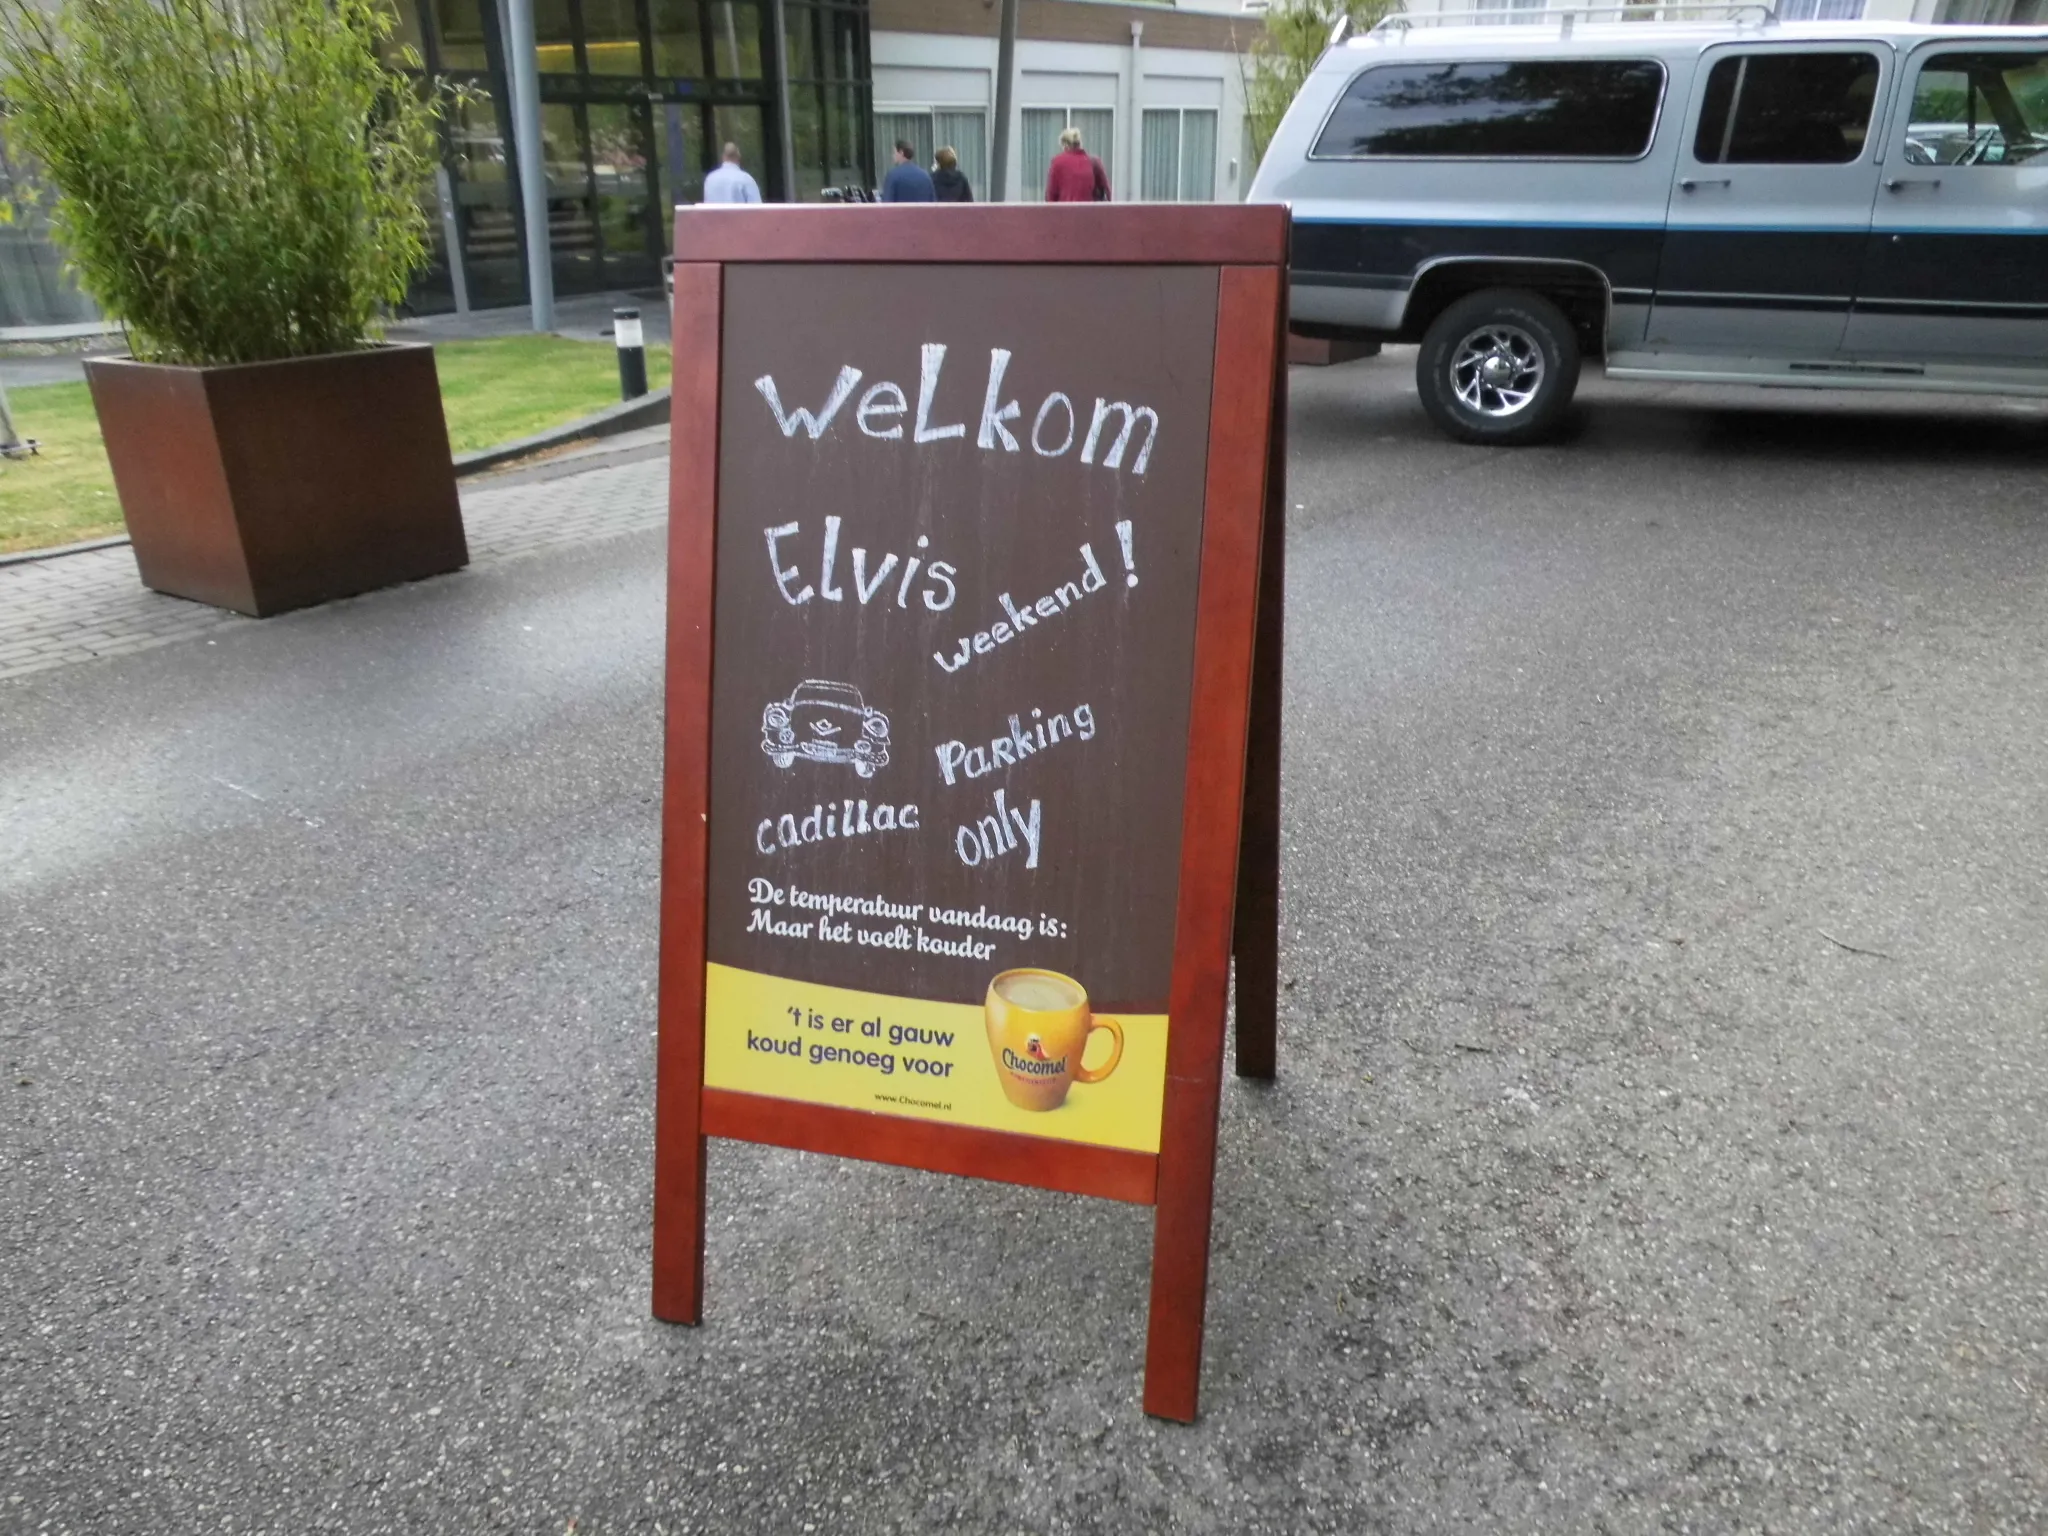 Welkom
Elvis
weekend!
Parking
cadillac only
De temperatuur vandaag is:
Maar het voelt kouder
't is er al gauw
koud genoeg voor
Chocomel
www.Chocomel.nl